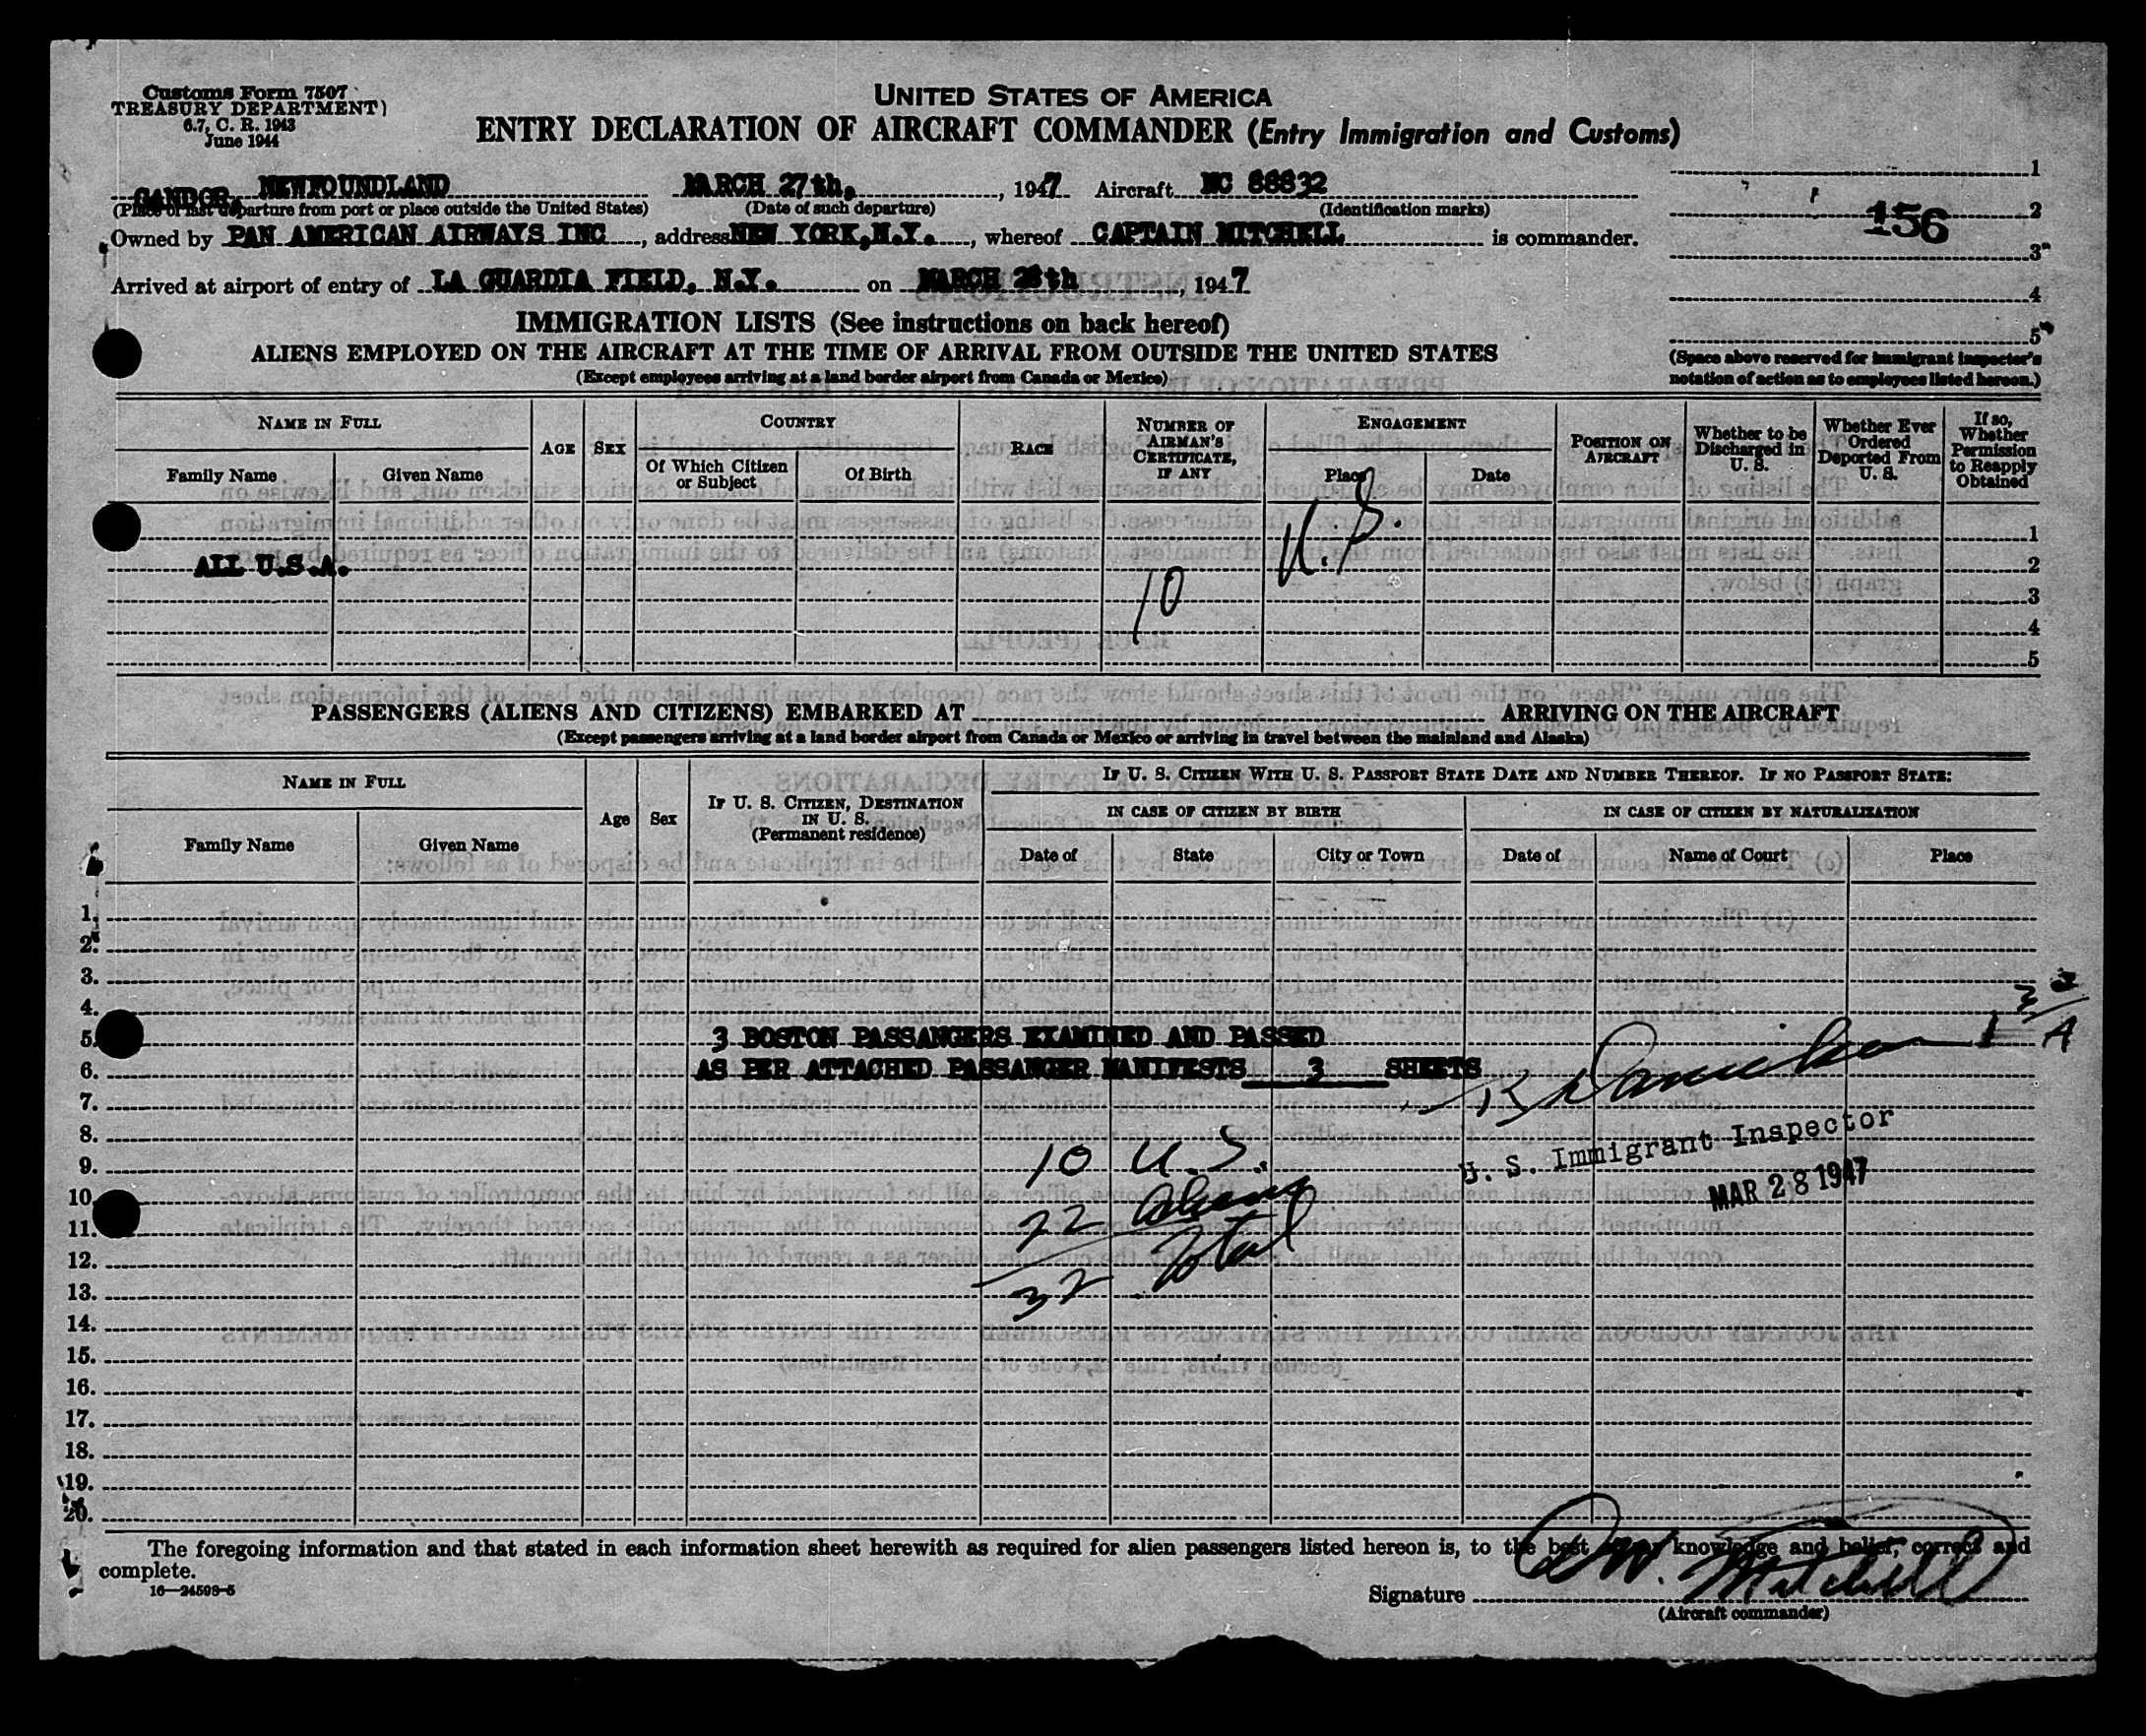 Customs Form 7507
TREASURY DEPARTMENT)
6.7, C. R. 1943
June 1944
UNITED STATES OF AMERICA
ENTRY DECLARATION OF AIRCRAFT COMMANDER (Entry Immigration and Customs)
GANDOR, NEWFOUNDLAND MARCH 27th, , 1947 Aircraft NC 88832
(Place of last departure from port or place outside the United States) (Date of such departure) (Identification marks)
Owned by PAN AMERICAN AIRWAYS INC , address NEW YORK,N.Y. , whereof CAPTAIN MITCHELL is commander.
Arrived at airport of entry of LA GUARDIA FIELD, N.Y. on MARCH 28th , 1947
1
2
156
3
4
5
(Space above reserved for immigrant inspector's
notation of action as to employees listed hereon.)
IMMIGRATION LISTS (See instructions on back hereof)
ALIENS EMPLOYED ON THE AIRCRAFT AT THE TIME OF ARRIVAL FROM OUTSIDE THE UNITED STATES
(Except employees arriving at a land border airport from Canada or Mexico)
NAME IN FULL
Family Name Given Name
AGE
SEX
COUNTRY
Of Which Citizen or Subject
Of Birth
RACE
NUMBER OF AIRMAN'S CERTIFICATE, IF ANY
ENGAGEMENT
Place Date
POSITION ON AIRCRAFT
Whether to be Discharged in U. S.
Whether Ever Ordered Deported From U. S.
If so, Whether Permission to Reapply Obtained
1
ALL U.S.A. 2
10 U.S.
3
4
5
PASSENGERS (ALIENS AND CITIZENS) EMBARKED AT ARRIVING ON THE AIRCRAFT
(Except passengers arriving at a land border airport from Canada or Mexico or arriving in travel between the mainland and Alaska)
NAME IN FULL
Family Name Given Name
Age
Sex
IF U. S. CITIZEN, DESTINATION IN U. S.
(Permanent residence)
IF U. S. CITIZEN WITH U. S. PASSPORT STATE DATE AND NUMBER THEREOF. IF NO PASSPORT STATE:
IN CASE OF CITIZEN BY BIRTH
Date of State City or Town
IN CASE OF CITIZEN BY NATURALIZATION
Date of Name of Court Place
1.
2.
3.
4.
5. 3 BOSTON PASSANGERS EXAMINED AND PASSED
6. AS PER ATTACHED PASSANGER MANIFESTS 3 SHEETS
7.
8.
U. S. Immigrant Inspector
9. 10 U.S.
MAR 28 1947
10.
11. 22 Aliens
12.
13. 32 Total
14.
15.
16.
17.
18.
19.
20.
The foregoing information and that stated in each information sheet herewith as required for alien passengers listed hereon is, to the best knowledge and belief, correct and
complete.
16—24598-5
Signature W. Mitchell
(Aircraft commander)